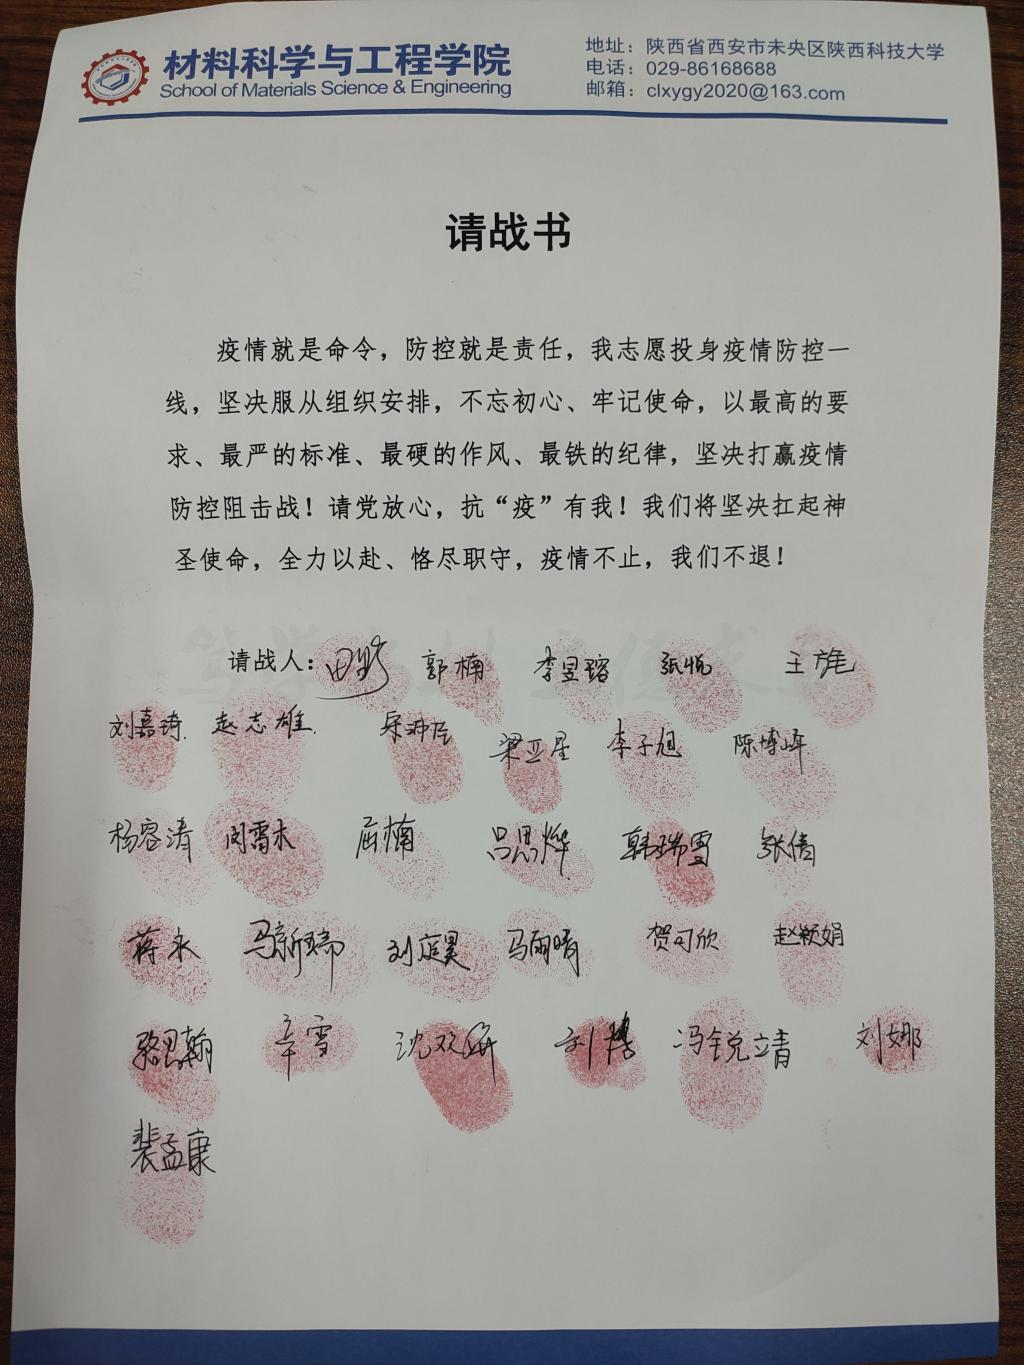 材料科学与工程学院
School of Materials Science & Engineering
地址：陕西省西安市未央区陕西科技大学
电话：029-86168688
邮箱：clxygy2020@163.com
请战书
疫情就是命令，防控就是责任，我志愿投身疫情防控一
线，坚决服从组织安排，不忘初心、牢记使命，以最高的要
求、最严的标准、最硬的作风、最铁的纪律，坚决打赢疫情
防控阻击战！请党放心，抗“疫”有我！我们将坚决扛起神
圣使命，全力以赴、恪尽职守，疫情不止，我们不退！
请战人：田野 郭楠 李昱瑢 张悦 王旄
刘嘉琦 赵志雄 梁亚星 李子旭 陈博峰
杨容清 闵霱木 屈楠 吕思烨 韩瑞雪 张倩
蒋永 马新瑞 刘庭昊 马雨晴 贺可欣 赵颖娟
骆思翰 辛雪 沈双妍 冯锐靖 刘娜
裴孟康